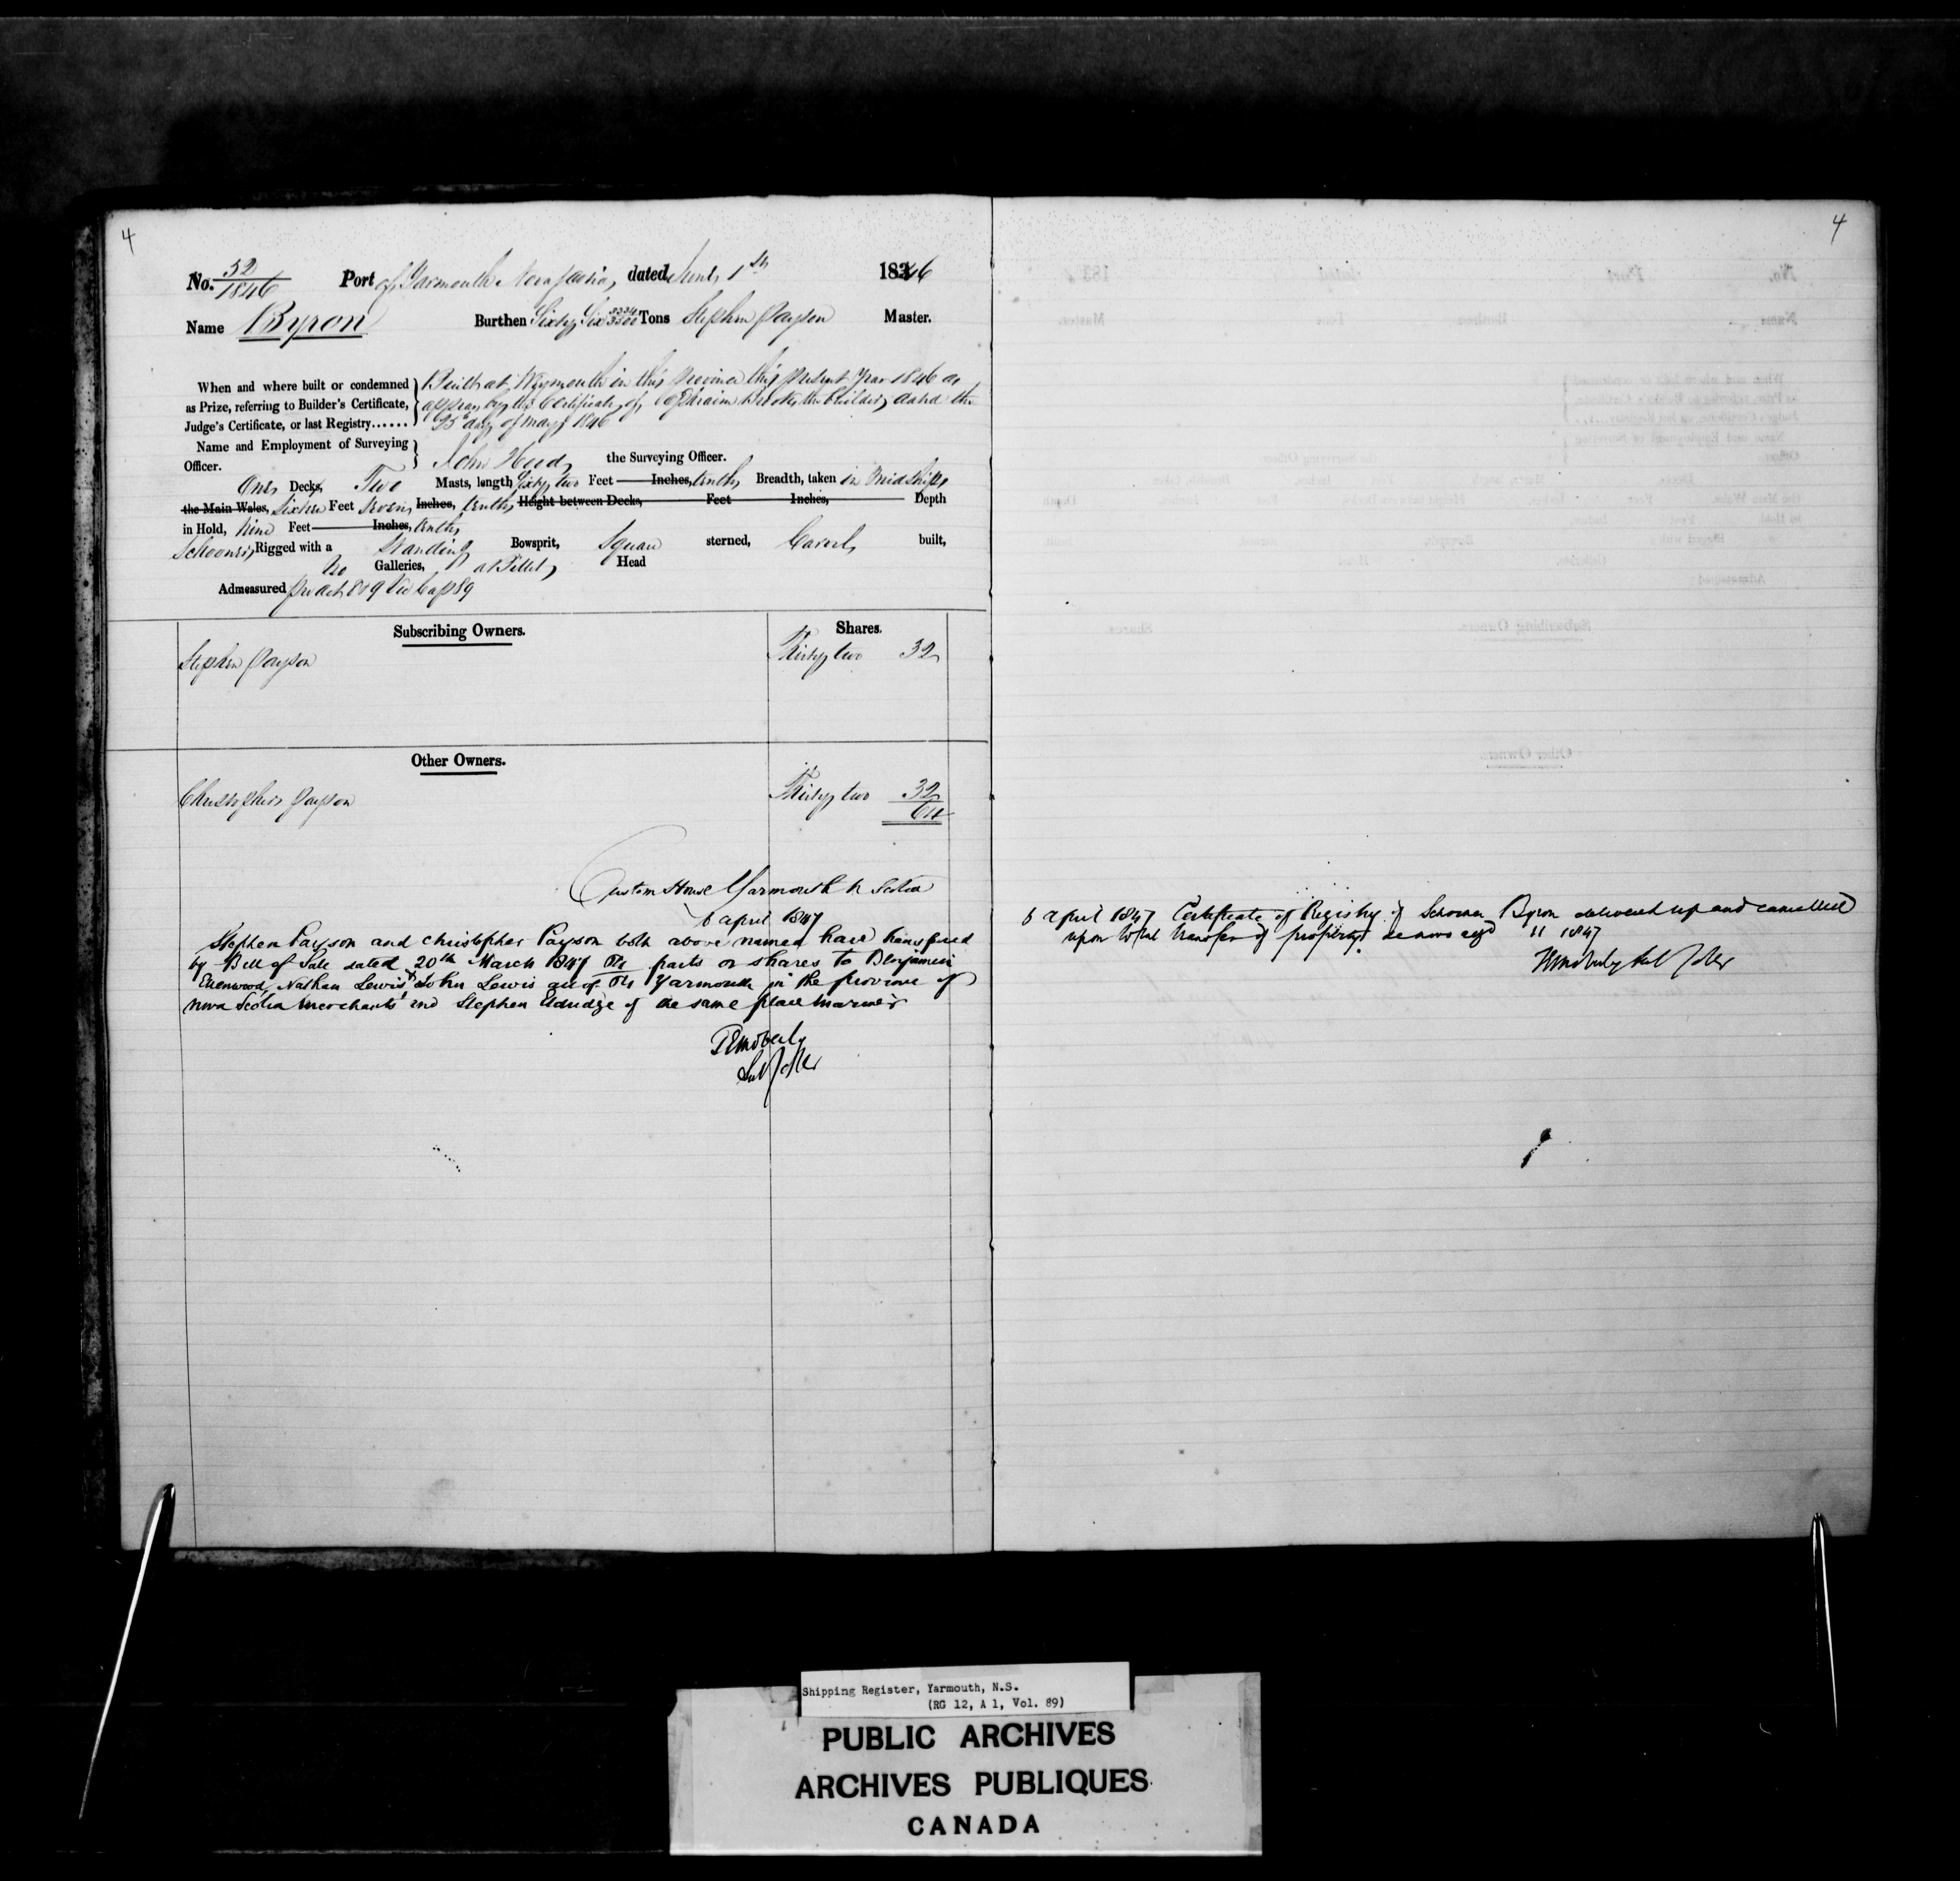 4
No. 32/1846 Port of Yarmouth Nova Scotia, dated June 1st 1846
Name Byron Burthen Sixty Six Tons Stephen Payson Master.
When and where built or condemned as Prize, referring to Builder's Certificate, Judge's Certificate, or last Registry......
Built at Weymouth in this Province this present Year 1846 as
appears by the Certificate of Ephraim Brooks the builder, dated the
25 day of May 1846
Name and Employment of Surveying Officer. John Heed, the Surveying Officer.
One Decks, Two Masts, length Sixty two Feet Inches, tenths, Breadth, taken in Midships
the Main Wales, Sixteen Feet Seven Inches, tenths, Height between Decks, Feet Inches, Depth
in Hold, Nine Feet Inches, tenths,
Schooner Rigged with a Standing Bowsprit, Square sterned, Carvel built,
no Galleries, a Billet Head
Admeasured per Act 8 & 9 Vic Cap 89
Subscribing Owners. Shares.
Stephen Payson Thirty two 32
Other Owners.
Christopher Payson Thirty two 32
64
Custom House Yarmouth N Scotia
6 april 1847
Stephen Payson and Christopher Payson both above named have transferred
by Bill of Sale dated 20th March 1847 64 parts or shares to Benjamin
Ellenwood, Nathan Lewis & John Lewis all of Yarmouth in the province of
Nova Scotia Merchants and Stephen Eldridge of the same place Mariner
Moberly
4
6 april 1847 Certificate of Registry of Schooner Byron delivered up and cancelled
upon total transfer of property de novo regd 11 1847
Moberly
Shipping Register, Yarmouth, N.S.
(RG 12, A 1, Vol. 89)
PUBLIC ARCHIVES
ARCHIVES PUBLIQUES
CANADA